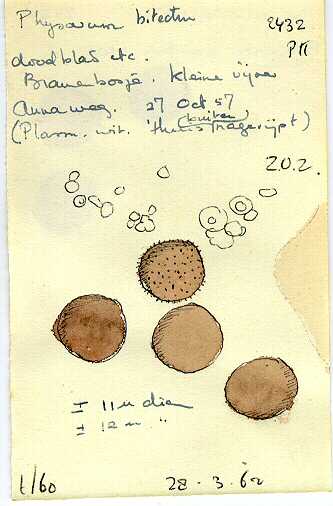 Physarum bitectum
2432
PM
dood blad etc.
Bramenbosje. kleine vijver
Annaweg. 27 Oct 57
(Plasm. wit. thuis
buiten
2.0.2.
± 11 u diam
± 12 u "
t/60
28-3-62